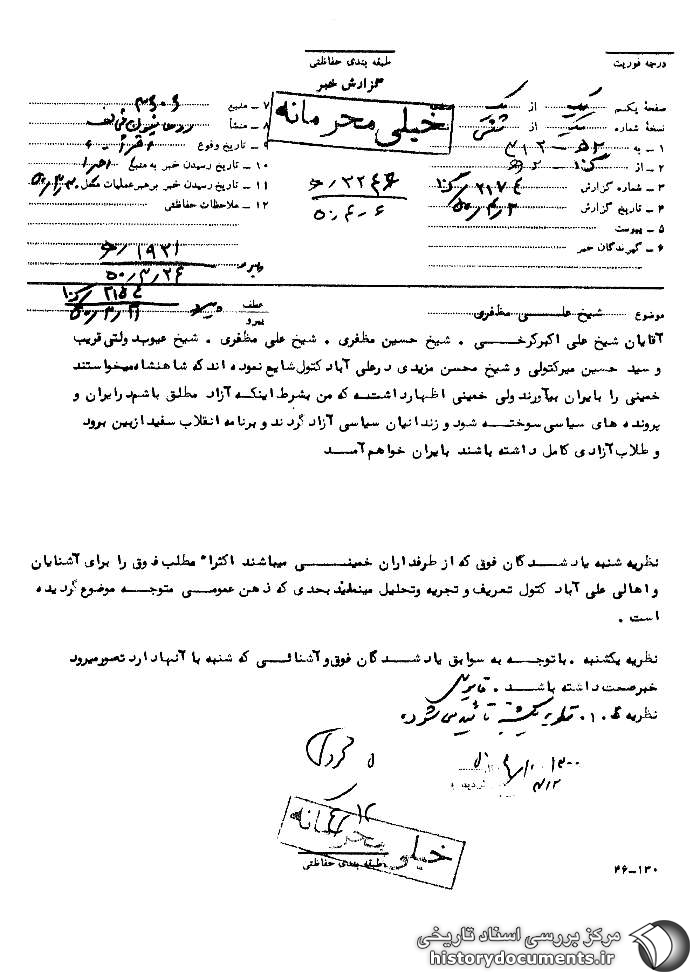 درجه فوریت
طبقه بندی حفاظتی
گزارش خبر
خیلی محرمانه
صفحه یکم از
نسخه شماره از
۱ ـ به ۳۱۲
۲ ـ از
۳ ـ شماره گزارش
۴ ـ تاریخ گزارش
۵ ـ پیوست
۶ ـ گیرندگان خبر
۷ ـ منبع
۸ ـ منشأ
۹ ـ تاریخ وقوع
۱۰ ـ تاریخ رسیدن خبر به منبع
۱۱ ـ تاریخ رسیدن خبر برهبر عملیات محل
۱۲ ـ ملاحظات حفاظتی
۵۰٫۴٫۶
۵۰٫۳٫۲۶
عطف
پیرو
موضوع شیخ علی مظفری
آقایان شیخ علی اکبر کرخی . شیخ حسین مظفری . شیخ علی مظفری . شیخ عیوب دولتی قریب
و سید حسین میرکتولی و شیخ محسن مزیدی در علی آباد کتول شایع نموده اند که شاهنشاه میخواستند
خمینی را بایران بیآورند ولی خمینی اظهار داشته که من بشرط اینکه آزاد مطلق باشم در ایران و
پرونده های سیاسی سوخته شود و زندانیان سیاسی آزاد گردند و برنامه انقلاب سفید از بین برود
و طلاب آزادی کامل داشته باشند بایران خواهم آمد
نظریه شنبه یاد شدگان فوق که از طرفداران خمینی میباشند اکثراً مطلب فوق را برای آشنایان
و اهالی علی آباد کتول تعریف و تجزیه وتحلیل مینمایند بحدی که ذهن عمومی متوجه موضوع گردیده
است .
نظریه یکشنبه . با توجه به سوابق یاد شدگان فوق و آشنائی که شنبه با آنها دارد تصور میرود
خبر صحت داشته باشد .
نظریه ۱۰ ک . نظریه یکشنبه تأیید می شود .
خیلی محرمانه
طبقه بندی حفاظتی
۴۶-۱۳۰
مرکز بررسی اسناد تاریخی
historydocuments.ir